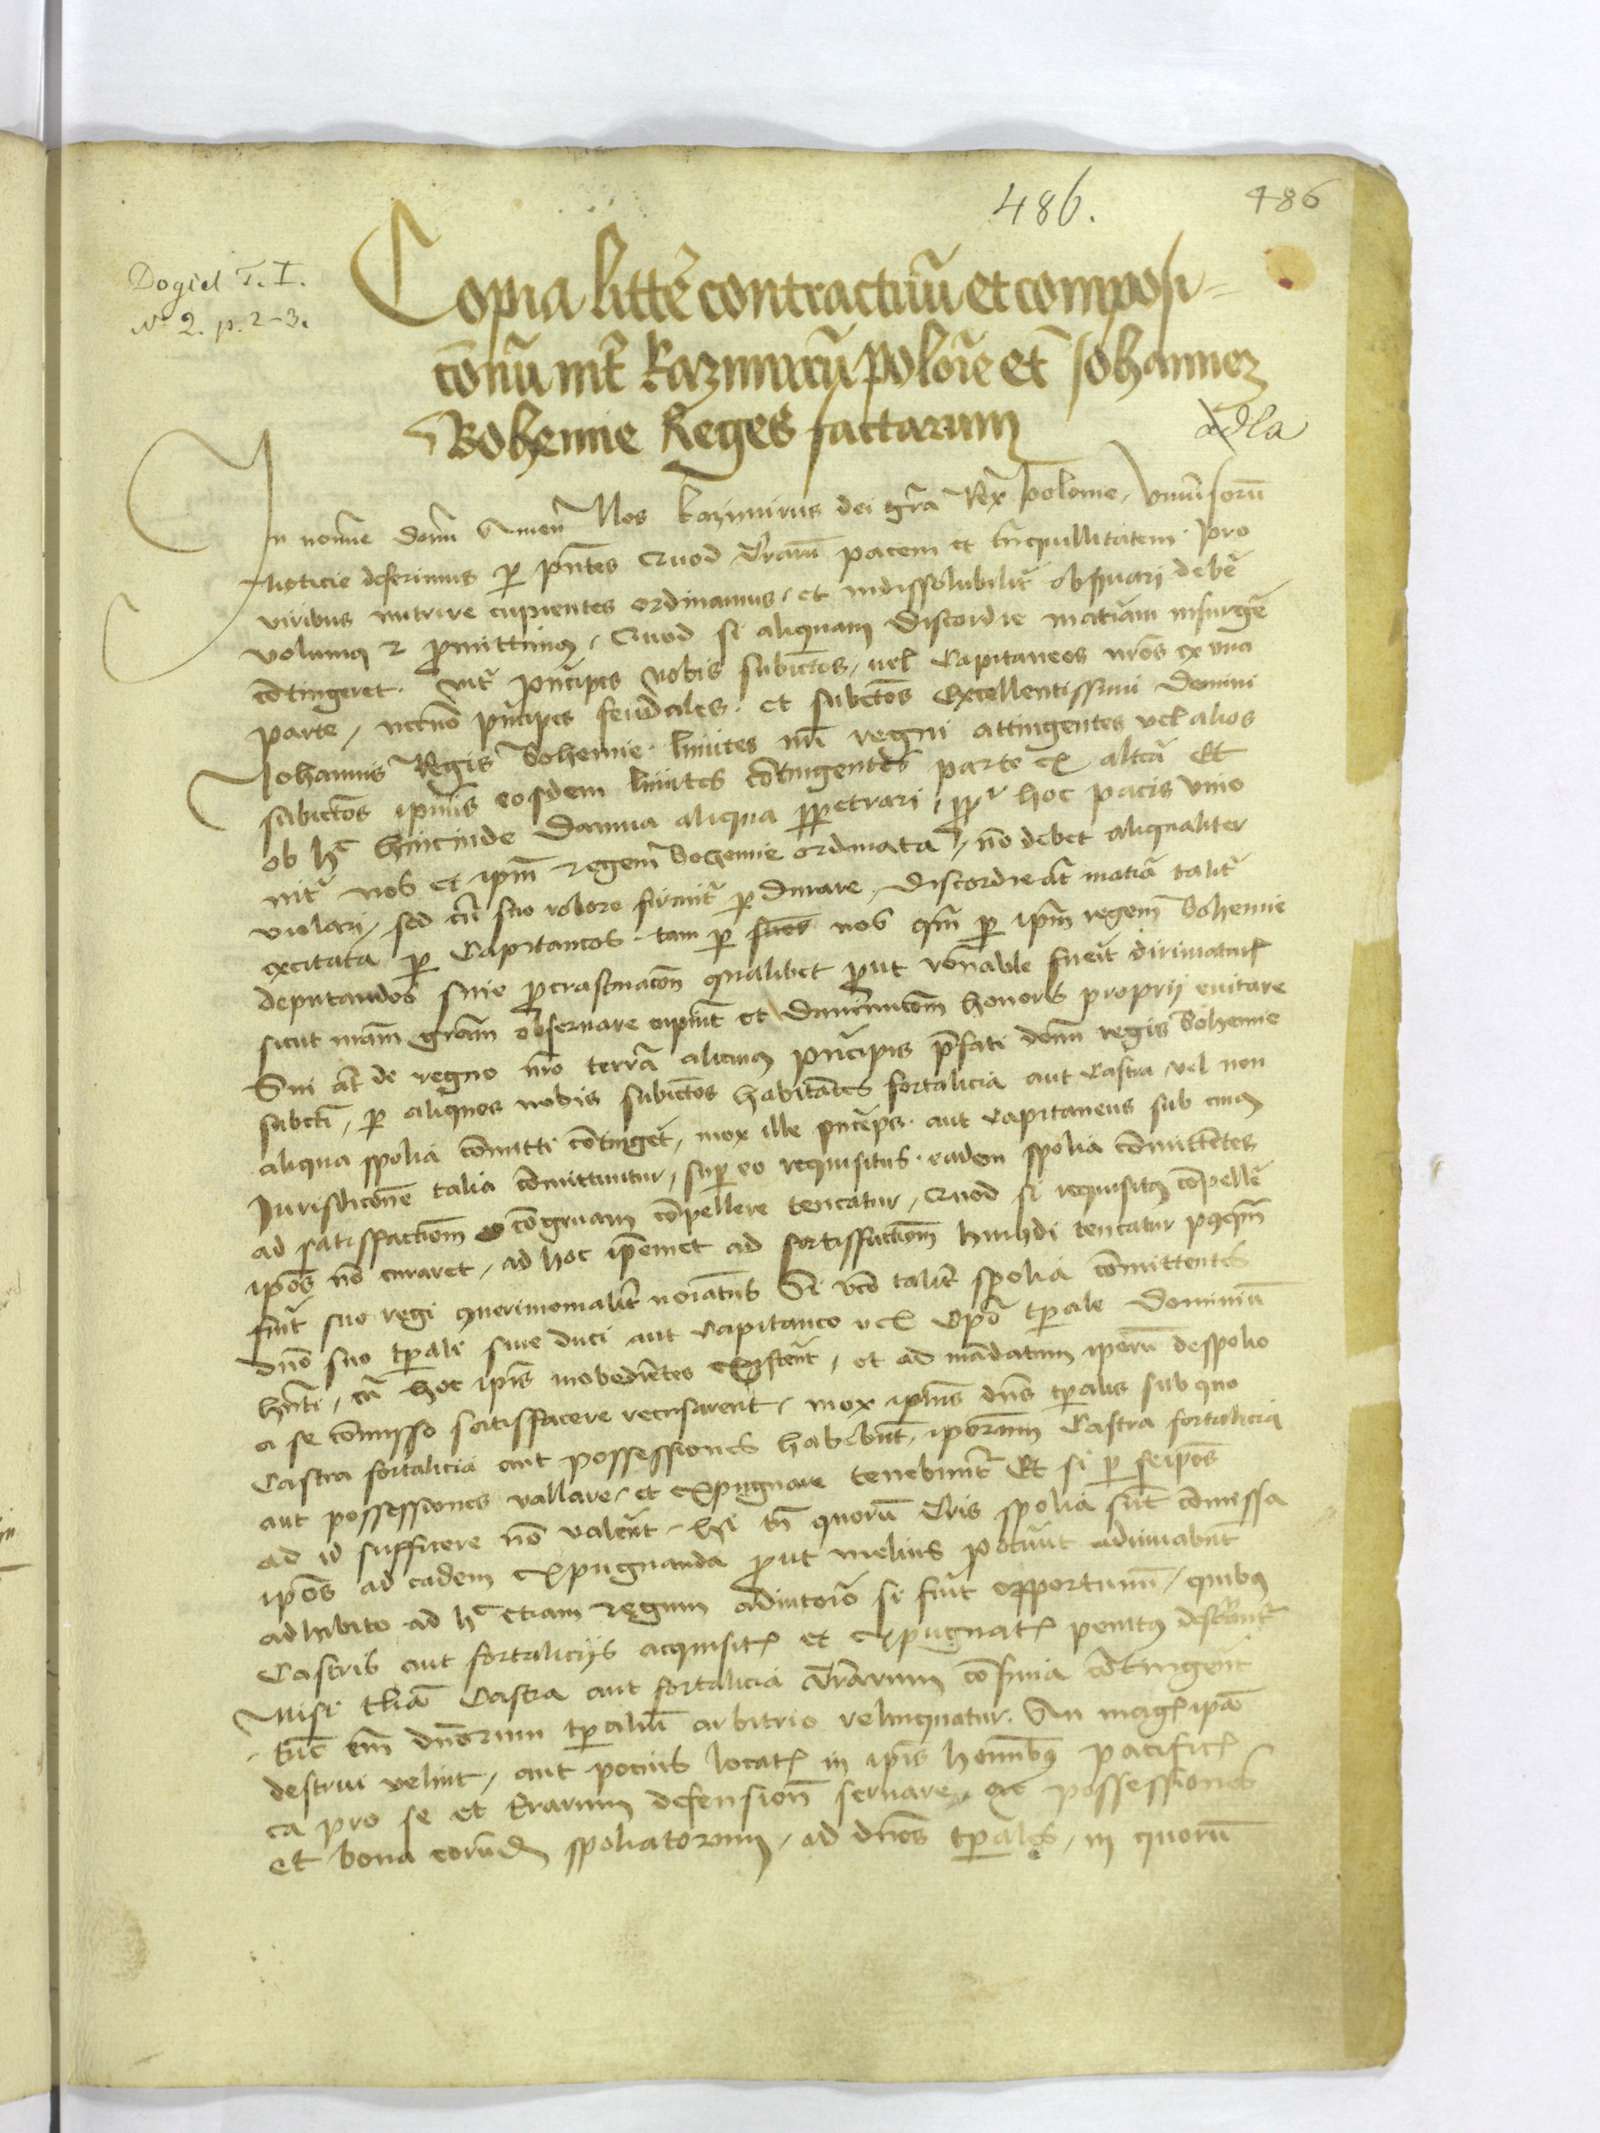 486.
486
Dogiel T. I.
N. 2. p. 2-3.
Copia littẽ contractuũ et composi-
cõnũ int̃ Kazimirũ Polonie et Johannem
Bohemie Reges factarum
In nomĩe domĩ Amen Nos Kazimirus dei grã Rex Polonie, Vniũsorũ
Noticie deferimus ꝑ pñtes Quod t̃rarũ pacem et trãquillitatem pro
viribus nutrire cupientes ordinamus, et indissolubilit̃ obẽuari debẽ
volumꝰ et promittimꝰ, Quod si aliquam discordie matiãm insurgẽ
cõtingeret, int̃ prĩcipes nobis subiectos, uel Capitaneos nrõs ex vna
parte, necnõ prĩcipes feudales, et subiectos excellentissimi domini
Johannis Regis Bohemie limites nrĩ regni attingentes vel alios
subiectos ipsius eosdem limites cõtingentes parte ex altera Et
ob hoc hincinde damna aliqua ꝑpetrari, ꝑ hoc pacis vnio
int̃ nos et ipm̃ regem Bohemie ordinata, nõ debet aliqualiter
violari, sed cũ suo robore firmit̃ ꝑdurare, Discordie aũt matiã talit̃
excitata ꝑ Capitaneos tam ꝑ nos qm̃ ꝑ ipm̃ regem Bohemie
deputandos sine procrastinacõne qualibet prout rõnabile fuerit dirimatur
sicut nrãm grãm obseruare cupiunt et diminucõem honoris proprij euitare
Sin aũt de regno nrõ terrã alicuiꝰ prĩcipis prefati domĩ regis Bohemie
subiecti, ꝑ aliquos nobis subiectos habitãtes fortalicia aut Castra vel non
aliqua spolia cõmitti cõtinget, mox ille prĩceps aut Capitaneus sub cuiꝰ
Jurisdicõne talia cõmittuntur, super eo requisitus eadem spolia cõmittẽtes
ad satisfactiõem cõgruam cõpellere teneatur, Quod si requisitꝰ cõpellẽ
ipõs nõ curaret, ad hoc ipẽmet ad satisfactiõem tenetatur
fuit̃ suo regi querimonialit̃ Si vero talit̃ spolia cõmittentes
dnõ suo tꝑali siue duci aut Capitaneo tꝑale dominiũ
hñti, hoc ipĩs inobediẽtes existerẽt, et ad mãdatum ipõrũ de spolio
a se cõmisso satisfacere recusarent, mox ipsius dñs tꝑalis sub quo
Castra fortalicia aut possessiones habebũt, ipõrum Castra fortalicia
aut possessiones vallare, et expugnare tenebunt̃ Et si ꝑ seipõs
ad id sufficere nõ valerẽt, hi quorũ t̃ris spolia sũt cõmissa
ipõs ad eadem expugnanda prout melius poterũt adiuuabũt
adhibito ad hoc etiam regum adiutorio si fuit̃ opportunũ, quibꝰ
Castris aut fortalicijs acquisitis et expugnatis penitꝰ destruent̃
Nisi talia Castra aut fortalicia t̃rarum cõfinia cõtingerẽt
tũc dnõrum tꝑaliũ arbitrio relinquatur. An magis ipã
destrui velint, aut pocius locatis in ipĩs hominibꝰ pacificis
ea pro se et t̃rarum defensiõe seruare, et possessiones
et bona eorundem spoliatorum, ad dnõs tꝑales, in quorũ